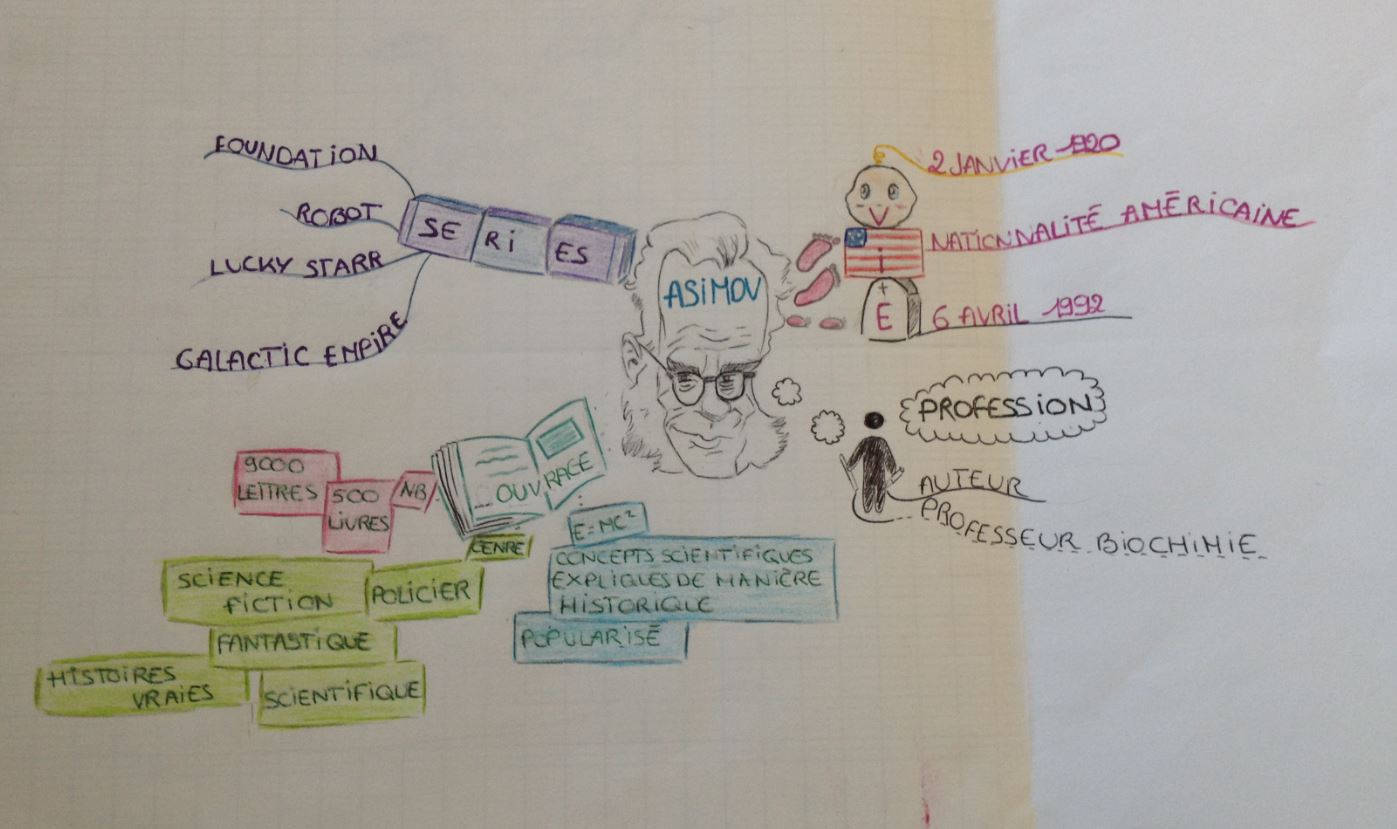 FOUNDATION
ROBOT
LUCKY STARR
GALACTIC EMPIRE
SE Ri ES
ASiMOV
2 JANViER 1920
NATiONNALiTÉ AMÉRiCAiNE
6 AVRiL 1992
V
i
E
PROFESSiON
AUTEUR
PROFESSEUR BiOCHiMiE
OUVRAGE
NB
9000
LETTRES
500
LiVRES
GENRE
SCiENCE
FiCTiON
POLiCiER
FANTASTiQUE
HiSTOiRES
VRAiES
SCiENTiFiQUE
E=MC²
CONCEPTS SCiENTiFiQUES
EXPLiQUES DE MANiÈRE
HiSTORiQUE
POPULARiSÉ